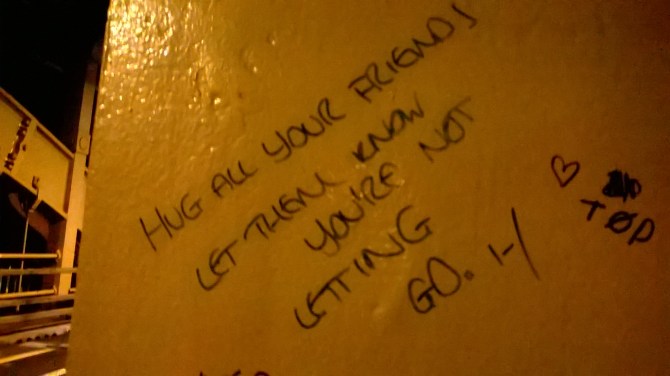 HUG ALL YOUR FRIENDS
LET THEM KNOW
YOU'RE NOT
LETTING
GO. |-/
♡
TØP